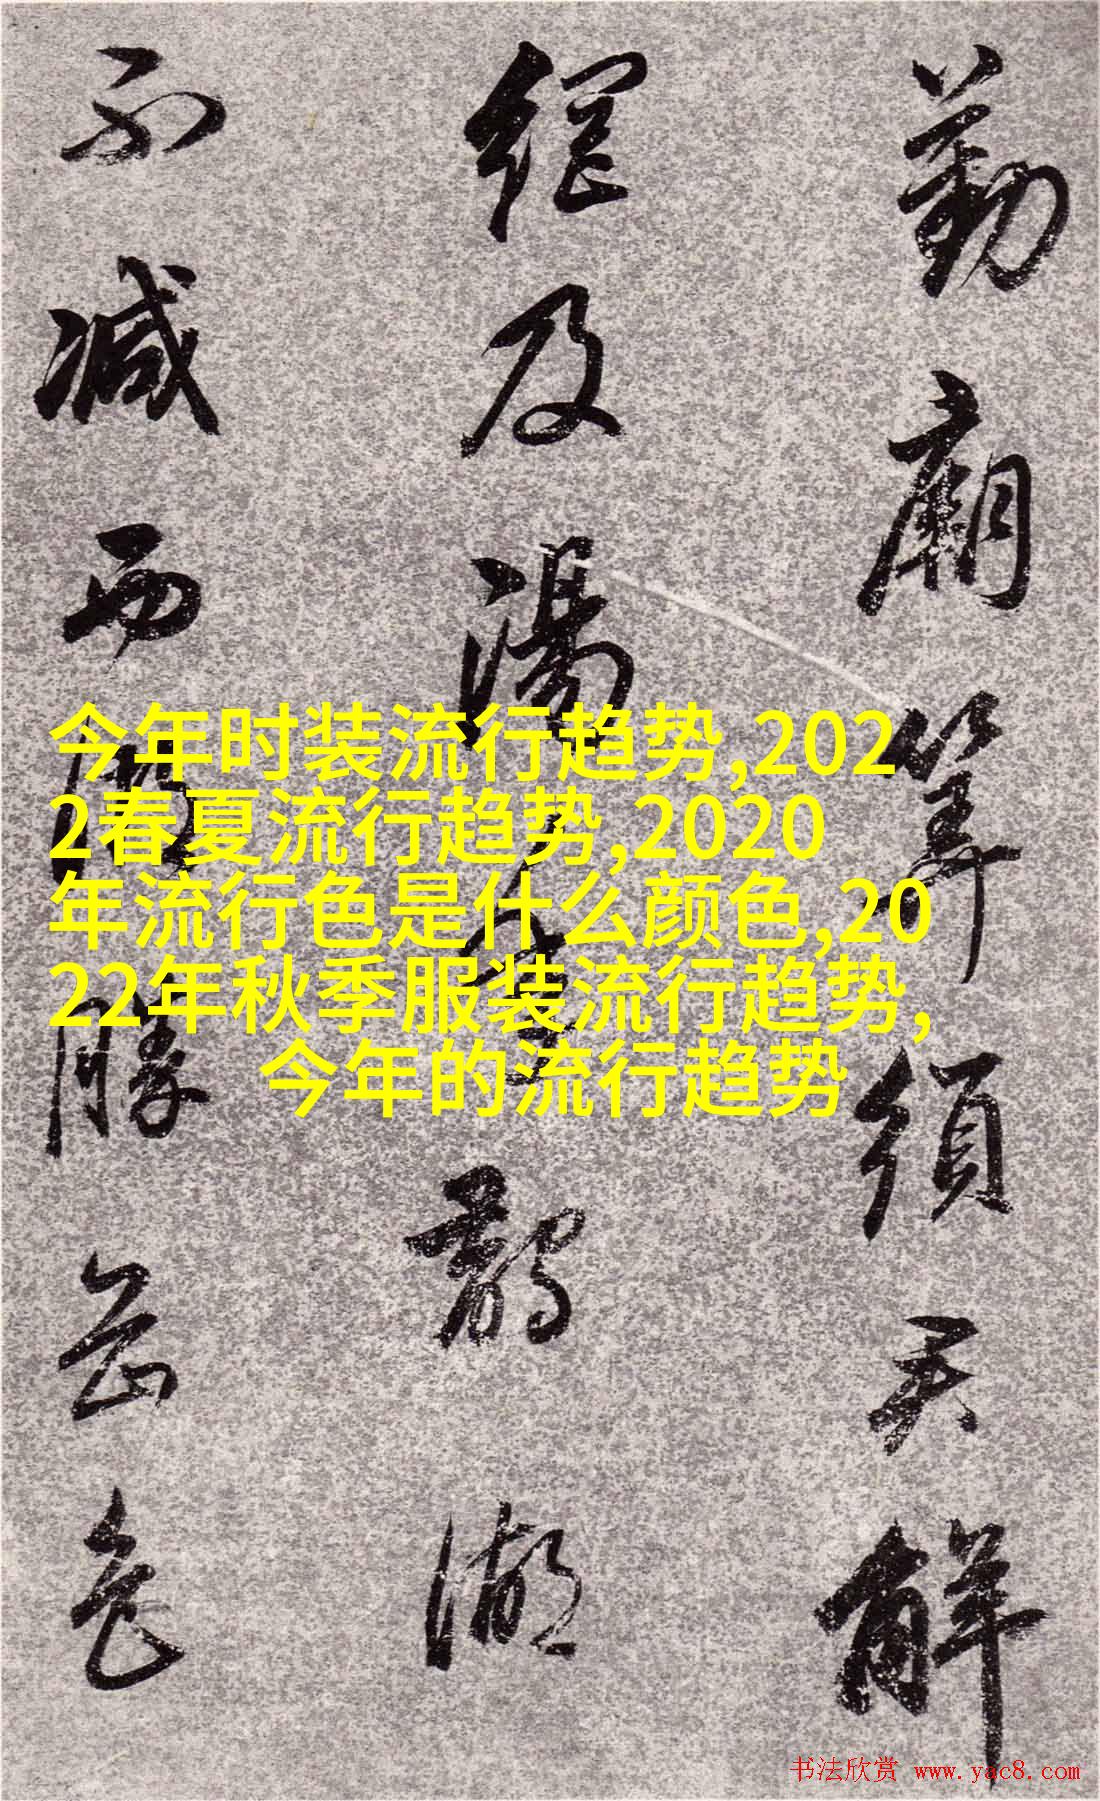 勤廟筭須君解
網及湯湖
不減西湖勝岳色
今年时装流行趋势,202
2春夏流行趋势,2020
年流行色是什么颜色,20
22年秋季服装流行趋势,
今年的流行趋势
书法欣赏 www.yac8.com